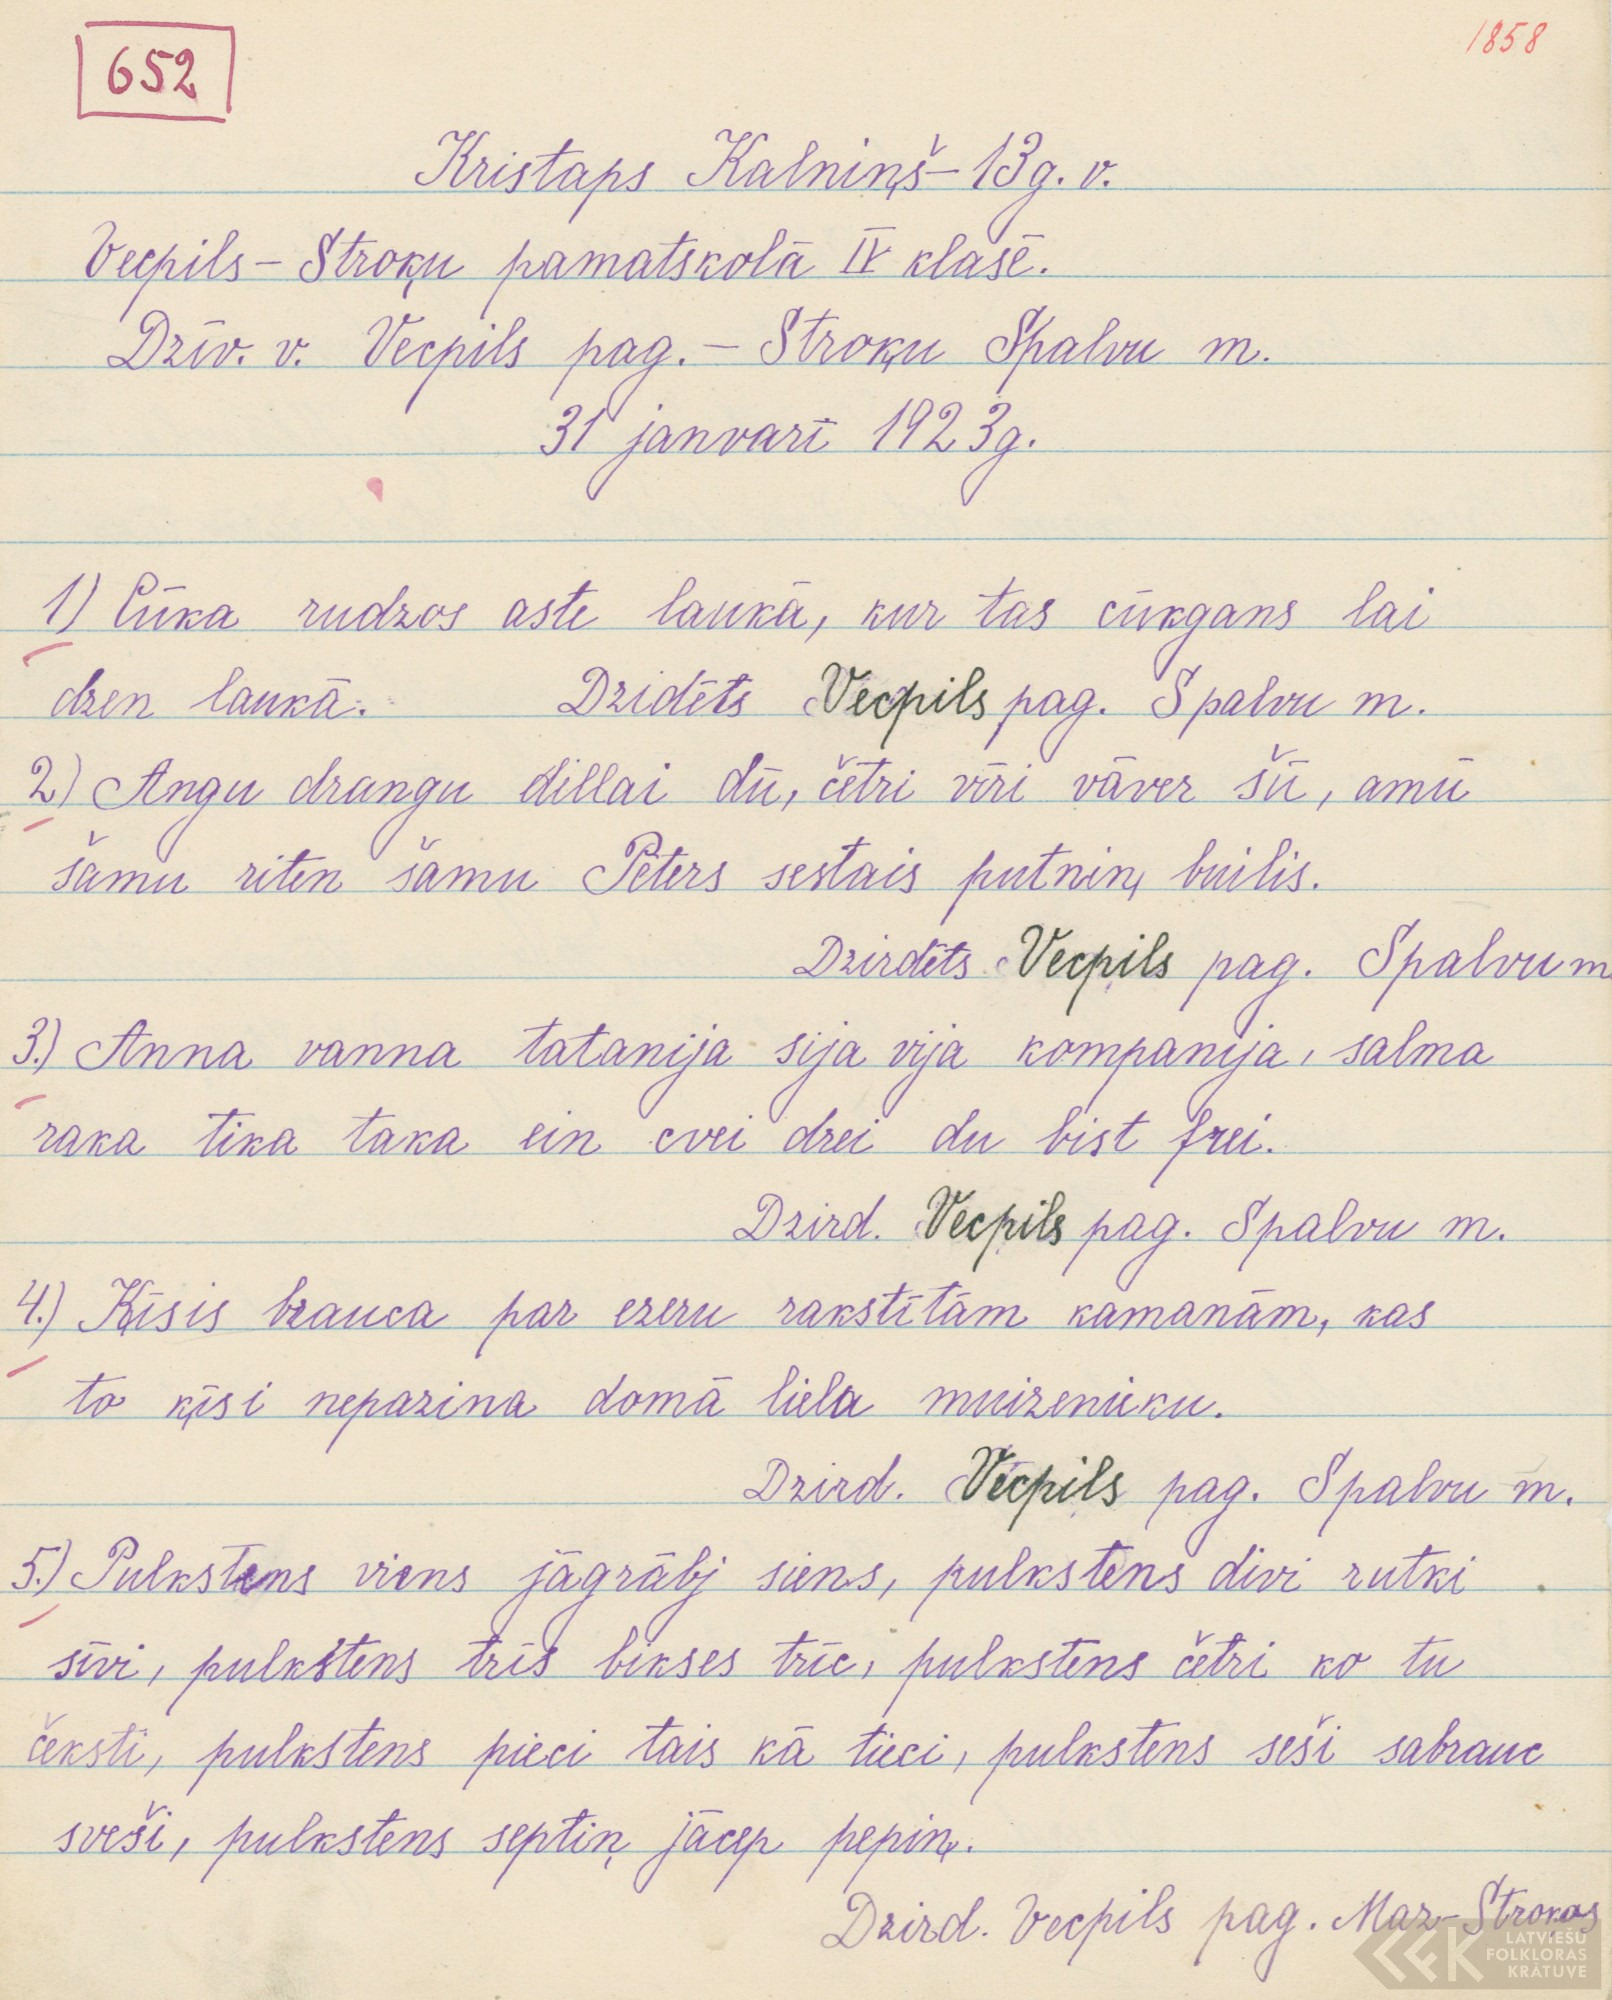 652
1858
Kristaps Kalniņš – 13 g. v.
Vecpils – Stroķu pamatskolā IV klasē.
Dzīv. v. Vecpils pag. – Stroķu Spalvu m.
31 janvarī 1923 g.
1) Cūka rudzos aste laukā, kur tas cūkgans lai
dzen laukā. Dzidēts Vecpils pag. Spalvu m.
2) Angu drangu dillai dū, četri vīri vāver šū, amū
šamu riten šamu Pēters sestais putniņ builis.
Dzirdēts Vecpils pag. Spalvu m
3.) Anna vanna tatanija sija vija kompanija, salma
raka tika taka ein cvei drei du bist frei.
Dzird. Vecpils pag. Spalvu m.
4.) Ķīsis brauca par ezeru rakstītām kamanām, kas
to ķīsi nepazina domā liela muizenieku.
Dzird. Vecpils pag. Spalvu m.
5.) Pulkstens viens jāgrābj siens, pulkstens divi rutki
sīvi, pulkstens trīs bikses trīc, pulkstens četri ko tu
čeksti, pulkstens pieci tais kā tieci, pulkstens seši sabrauc
sveši, pulkstens septiņ jācep pepiņ.
Dzird. Vecpils pag. Maz-Strokas
LATVIEŠU
FOLKLORAS
KRĀTUVE